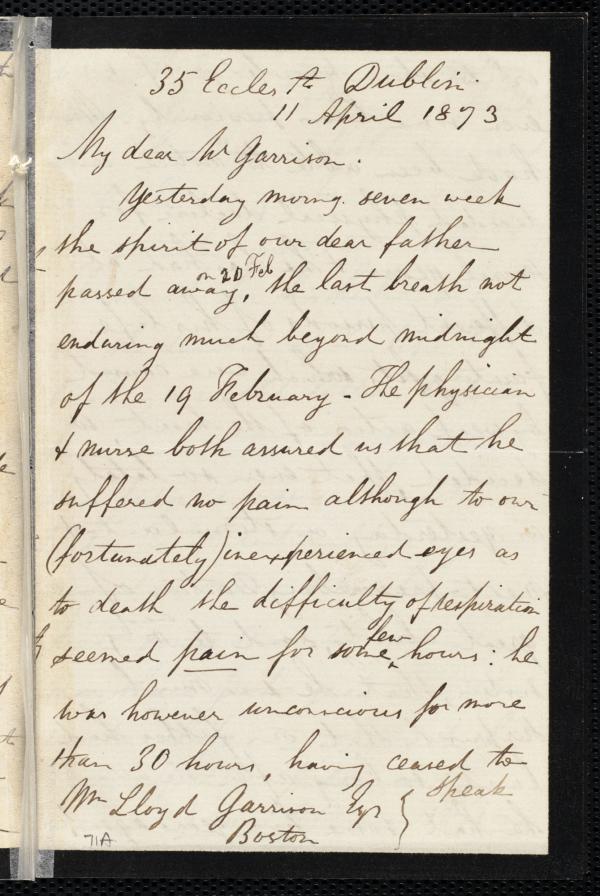 35 Eccles St Dublin.
11 April 1873
My dear Mr Garrison.
Yesterday morng. seven week
the spirit of our dear father
passed away, on 20 Feb the last breath not
enduring much beyond midnight
of the 19 February - The physician
& nurse both assured us that he
suffered no pain although to our
(fortunately) inexperienced eyes as
to death the difficulty of respiration
seemed pain for some few hours: he
was however unconscious for more
than 30 hours, having ceased to
speak
Wm Lloyd Garrison Esqr
Boston
71A